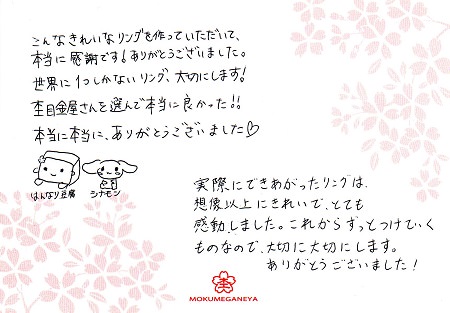 こんなきれいなリングを作っていただいて、
本当に感謝です！ありがとうございました。
世界に1つしかないリング、大切にします！
杢目金屋さんを選んで本当に良かった!!
本当に本当に、ありがとうございました♡
はんなり豆腐
シナモン
実際にできあがったリングは、
想像以上にきれいで、とても
感動しました。これからずっとつけていく
ものなので、大切に大切にします。
ありがとうございました！
杢
MOKUMEGANEYA